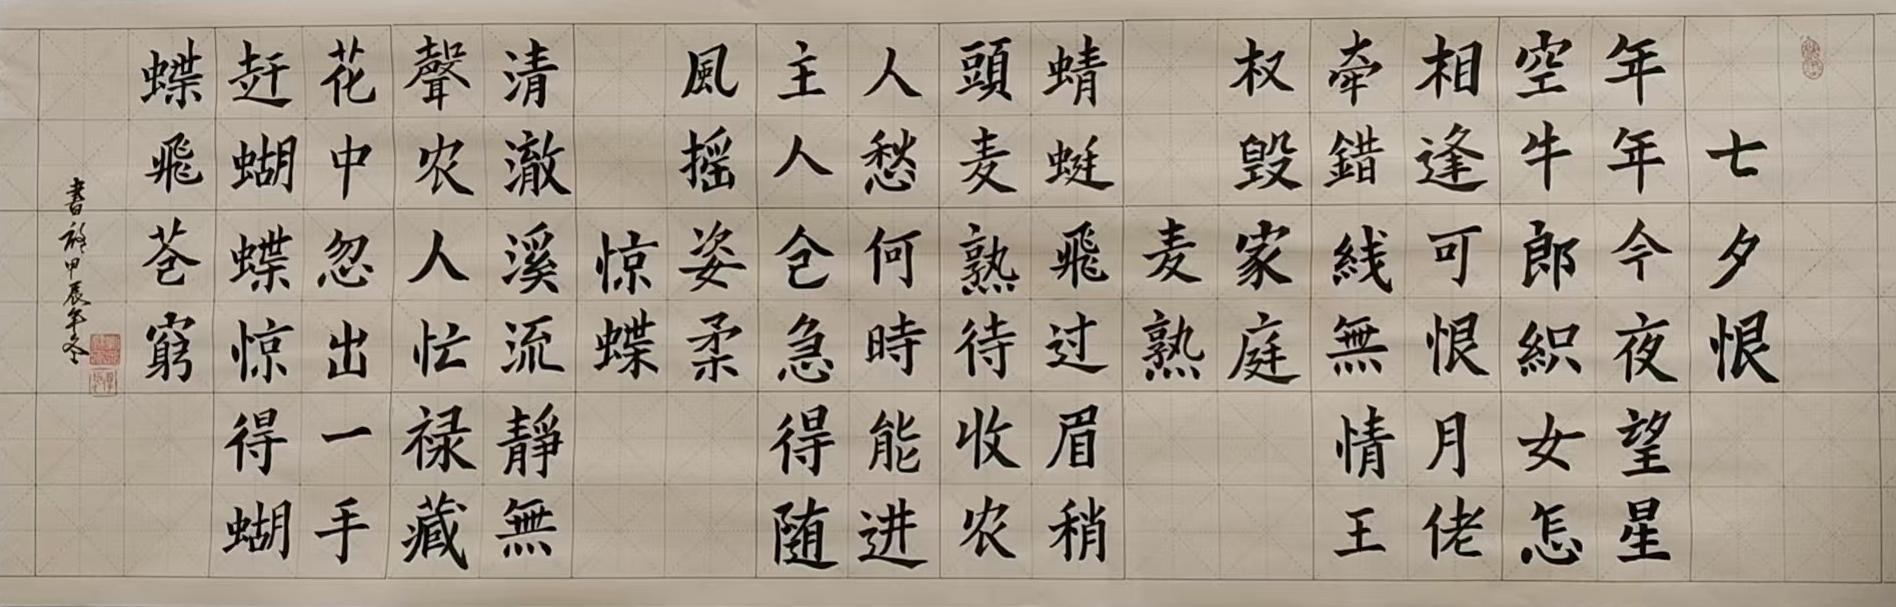 七夕恨
年年今夜望星
空牛郎織女怎
相逢可恨月佬
牽錯线無情王
权毁家庭
麦熟
蜻蜓飛过眉稍
頭麦熟待收农
人愁何時能进
主人仓急得随
風摇姿柔
惊蝶
清澈溪流靜無
聲农人忙禄藏
花中忽出一手
赶蝴蝶惊得蝴
蝶飛苍窮
甲辰年冬